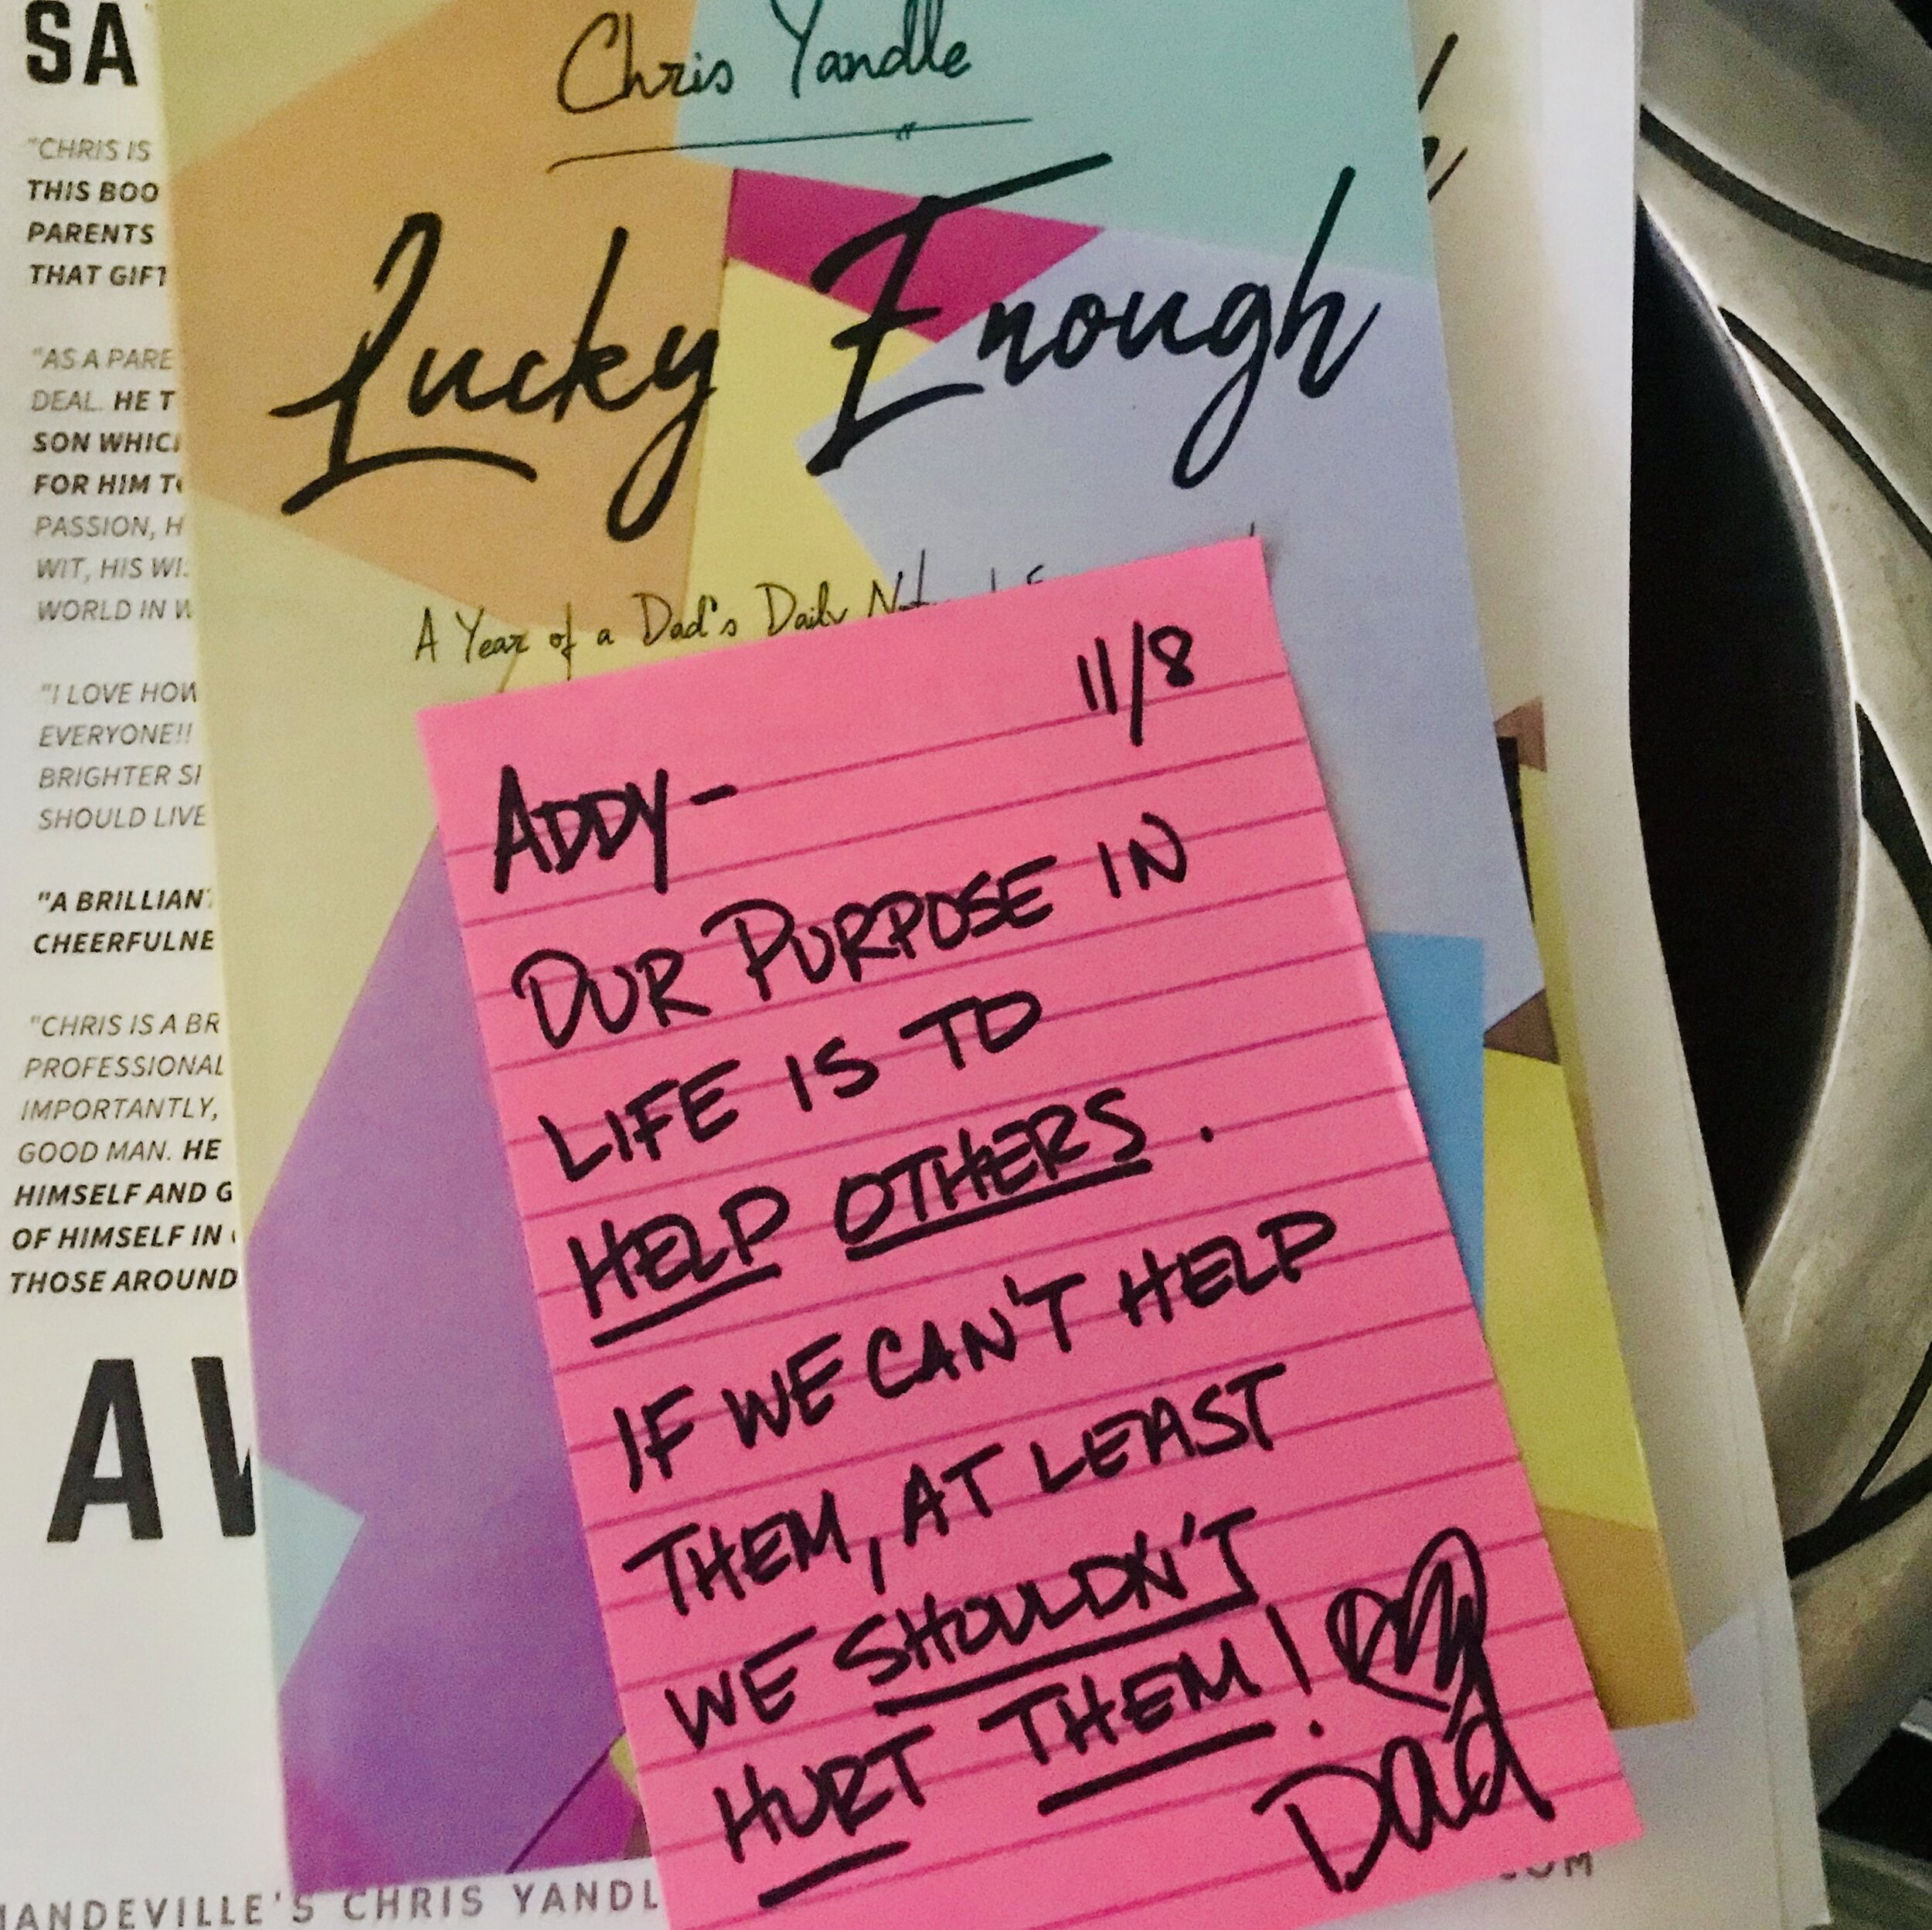 SA
"CHRIS IS
THIS BOO
PARENTS
THAT GIFT
"AS A PARE
DEAL. HE T
SON WHICH
FOR HIM T
PASSION, H
WIT, HIS WI
WORLD IN W
"I LOVE HOW
EVERYONE!!
BRIGHTER SI
SHOULD LIVE
"A BRILLIANT
CHEERFULNE
"CHRIS IS A BR
PROFESSIONAL
IMPORTANTLY,
GOOD MAN. HE
HIMSELF AND G
OF HIMSELF IN
THOSE AROUND
AW
Chris Yandle
Lucky Enough
A Year of a Dad's Daily
11/8
ADDY-
OUR PURPOSE IN
LIFE IS TO
HELP OTHERS.
IF WE CAN'T HELP
THEM, AT LEAST
WE SHOULDN'T
HURT THEM!
Dad
MANDEVILLE'S CHRIS YANDL
COM